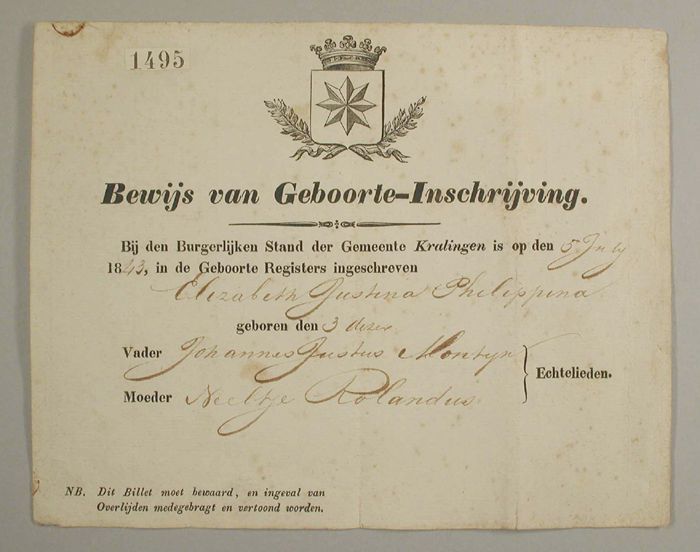 1495
Bewijs van Geboorte-Inschrijving.
Bij den Burgerlijken Stand der Gemeente Kralingen is op den 5 July
1843, in de Geboorte Registers ingeschreven
Elizabeth Justina Philippina
geboren den 3 dezer
Vader Johannes Justus Montyn
Echtelieden.
Moeder Neeltje Rolandus
NB. Dit Billet moet bewaard, en ingeval van
Overlijden medegebragt en vertoond worden.